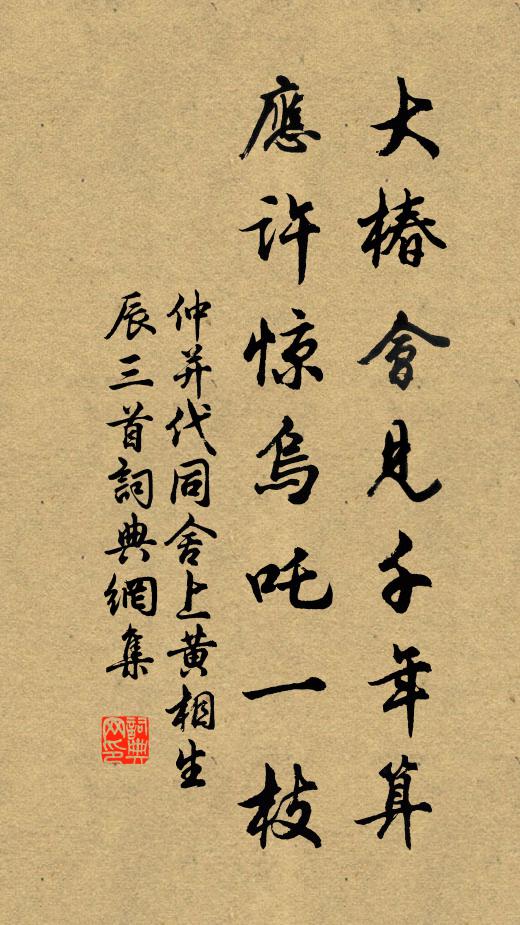 大椿會見千年算
應許惊烏吒一枝
仲并代同舍上黄相生
辰三首詞典網集
詞典
网印